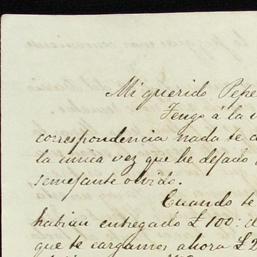 Mi querido Pepe
Tengo á la
correspondencia nada se
la única vez que he dejado
semejante olvido.
Cuando te
habian entregado £ 100:
que te cargamos ahora £ 2